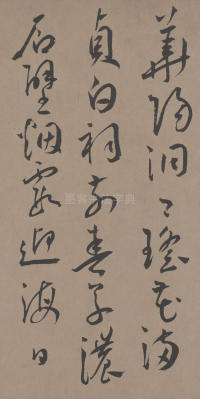 華陽洞口瑤花滿
貞白祠前春草濃
石壁烟霞迎海日